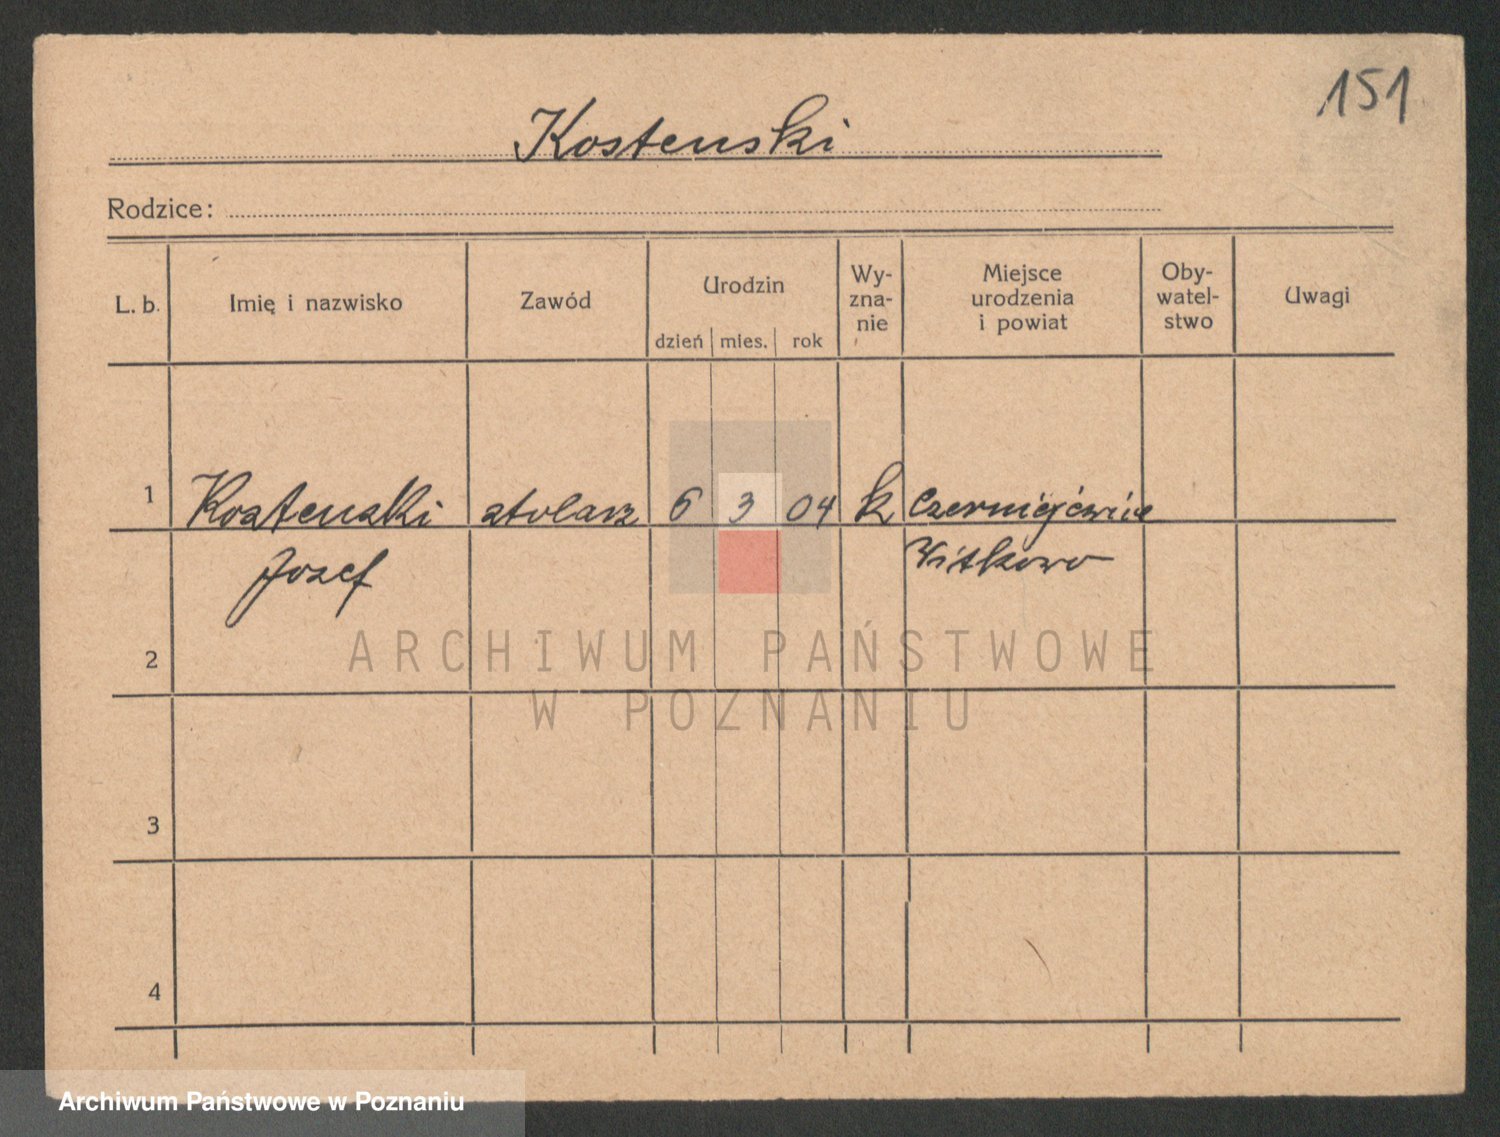 151
Kostenski
Rodzice:
L. b.
Imię i nazwisko
Zawód
Urodzin
dzień mies. rok
Wy-
zna-
nie
Miejsce
urodzenia
i powiat
Oby-
watel-
stwo
Uwagi
1 Kostenski stolarz 6 3 04 k Czerniejewice
Józef Witkowo
2
3
4
ARCHIWUM PAŃSTWOWE
W POZNANIU
Archiwum Państwowe w Poznaniu